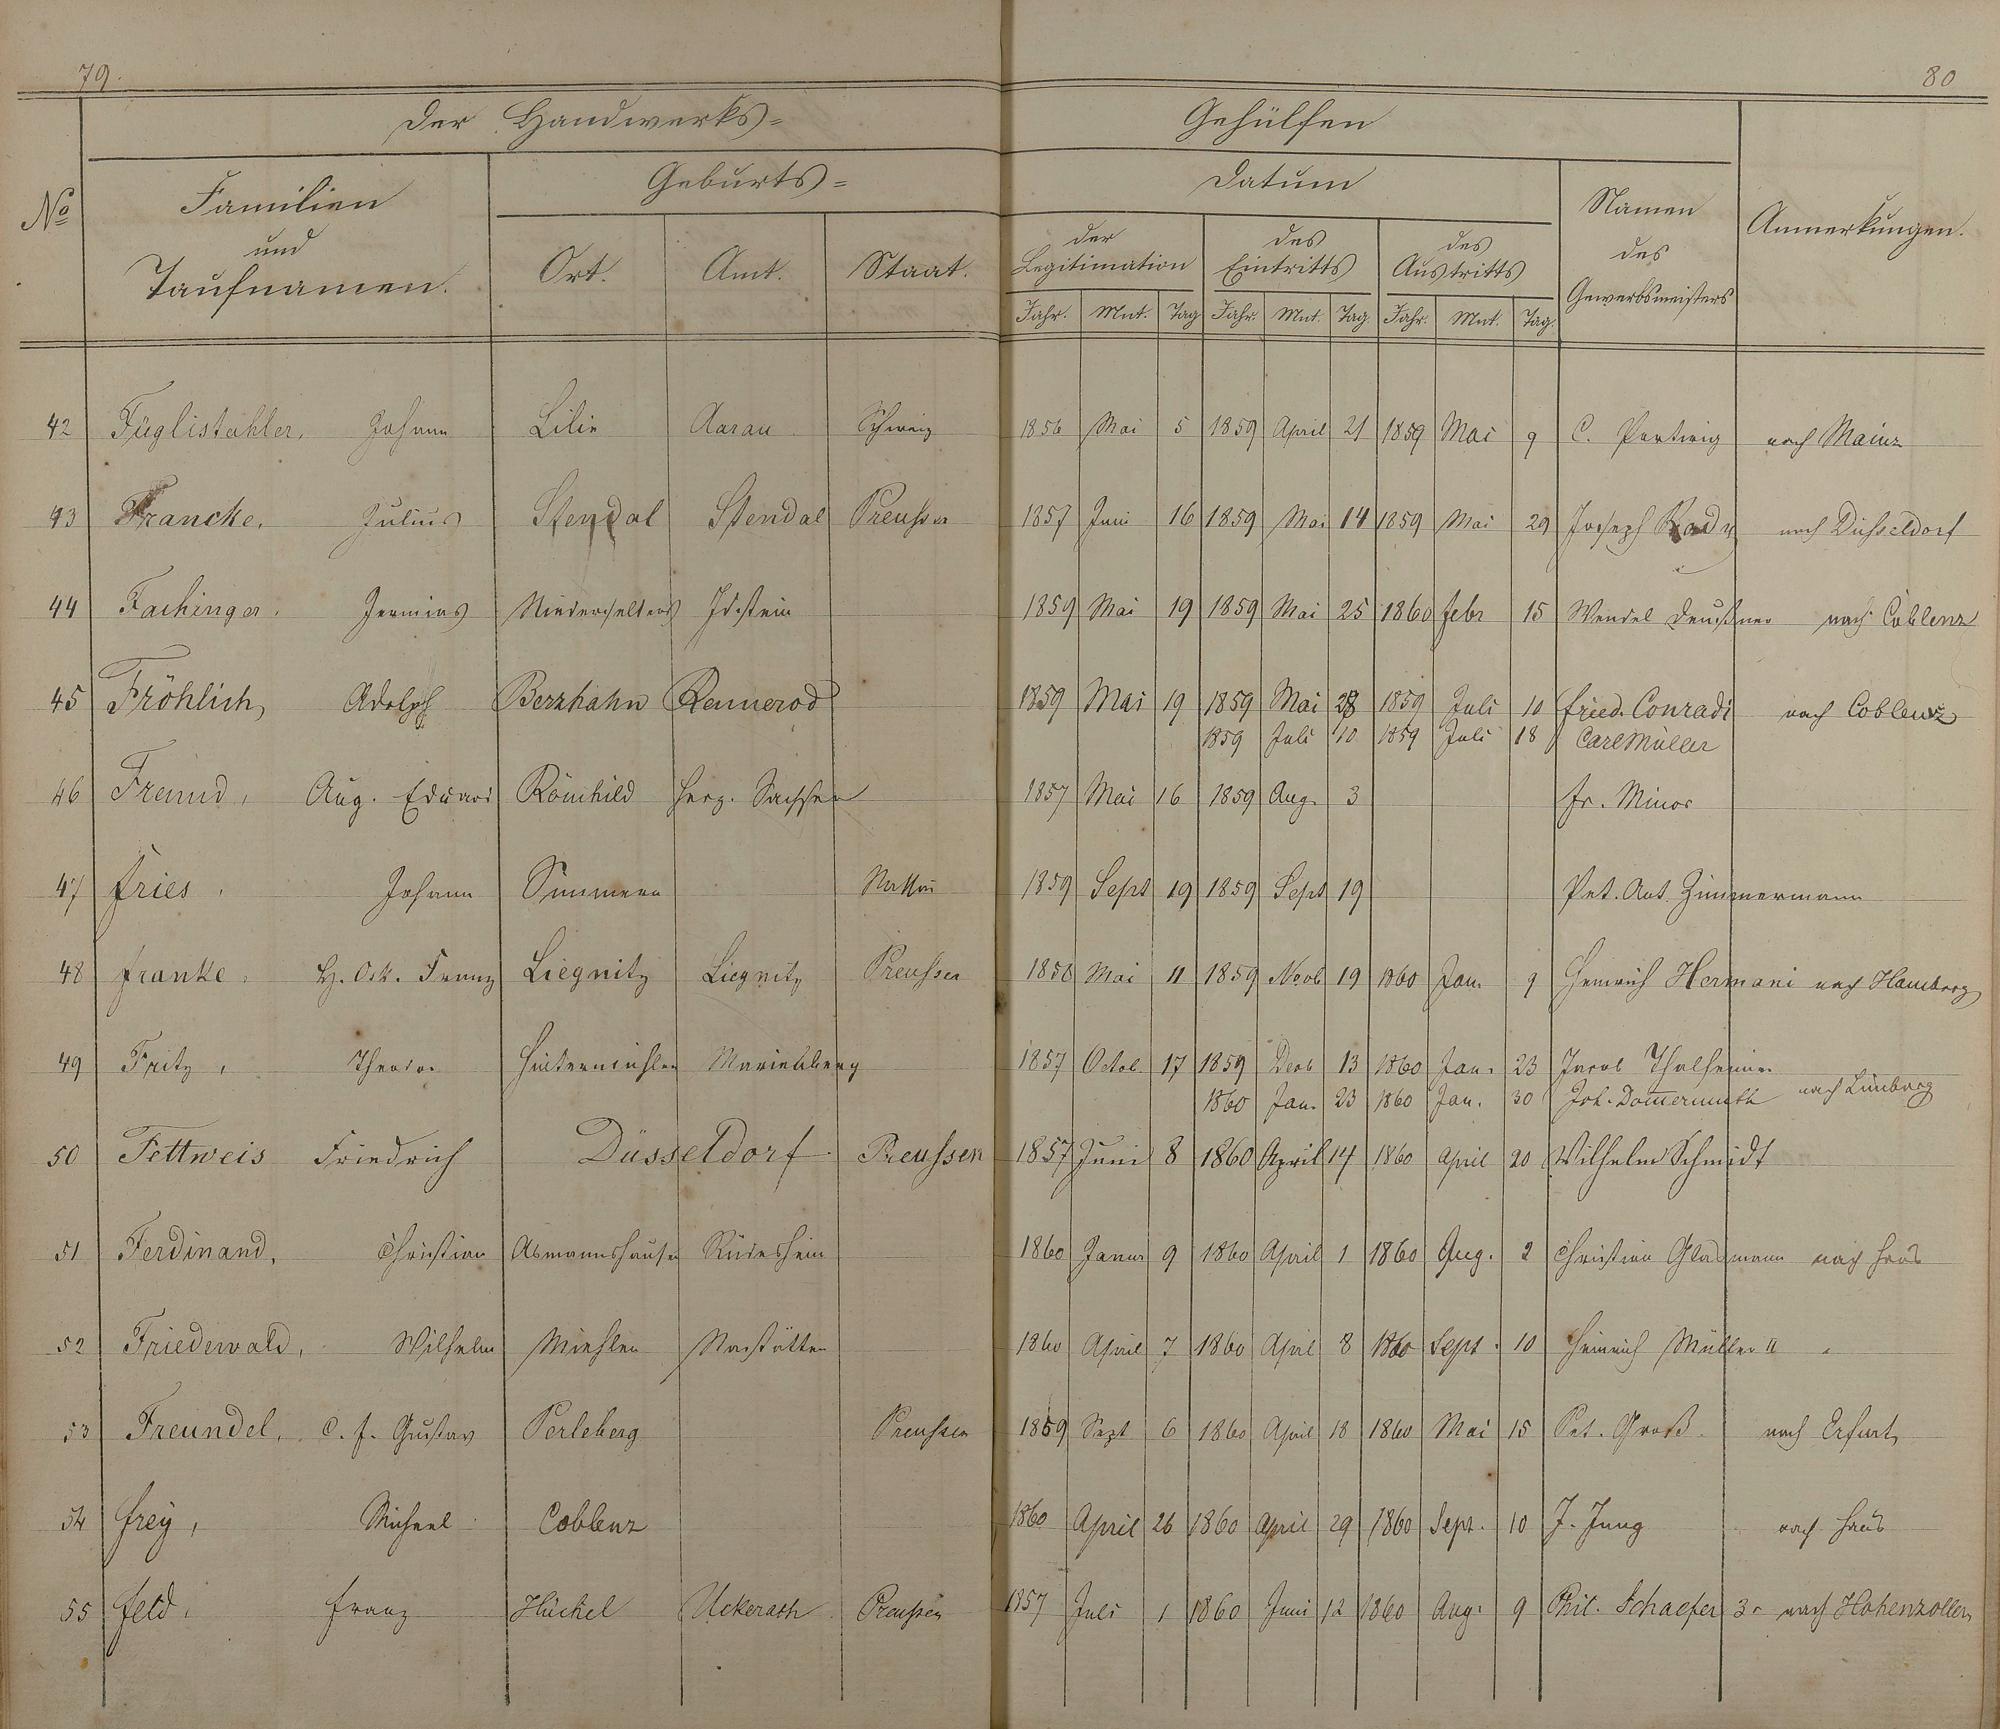 79.
80
Der Handwerks=
Gehülfen
No
Familien
und
Taufnamen.
Geburts=
Ort.
Amt.
Staat.
Datum
der
Legitimation
des
Eintritts
des
Austritts
Namen
des
Gewerbsmeisters
Anmerkungen.
Jahr. Mnt. Tag Jahr. Mnt. Tag. Jahr. Mnt. Tag.
42 Füglistahler, Johann Aarau Schweiz 1856 Mai 5 1859 April 21 1859 Mai 9 C. nach Mainz
43 Francke, Julius Stendal Stendal Preussen 1857 Juni 16 1859 Mai 14 1859 Mai 29 Joseph nach Düsseldorf
44 Fachinger, Jeremias Niederselters Idstein 1859 Mai 19 1859 Mai 25 1860 Febr 15 Wendel nach Coblenz
45 Fröhlich, Adolph Berzhahn Rennerod 1859 Mai 19 1859 Mai 28 1859 Juli 10 Fried. Conradi nach Coblenz
1859 Juli 10 1859 Juli 18 Carl Müller
46 Freund, Aug. Eduard Römhild Herz. Sachsen 1857 Mai 16 1859 Aug. 3 Fr. Minor
47 Fries, Johann Simmern Nassau 1859 Sept 19 1859 Sept 19 Pet. Ant. Zimmermann
48 Franke, H. Osk. Franz Liegnitz Liegnitz Preussen Mai 11 1859 Novb 19 1860 Jan. 9 Heinrich Hermani nach Hamburg
49 Fritz, Theodor Marienberg 1857 Octob. 17 1859 Decb 13 1860 Jan. 23 Jacob Thalheimer
1860 Jan. 23 1860 Jan. 30 Joh. Dom̅ermuth nach Limburg
50 Fettweis Friedrich Düsseldorf Preussen 1857 Juni 8 1860 April 14 1860 April 20 Wilhelm Schmidt
51 Ferdinand, Christian Asmannshausen Rüdesheim 1860 Januar 9 1860 April 1 1860 Aug. 2 Christian Glasmann nach Haus
52 Friedewald, Wilhelm Miehlen Nastätten 1860 April 7 1860 April 8 1860 Sept. 10 Heinrich Müller II "
53 Freundel, C. F. Gustav Perleberg Preussen 1859 Sept 6 1860 April 18 1860 Mai 15 Pet. Groß nach Erfurt
54 Frey, Michael Coblenz 1860 April 26 1860 April 29 1860 Sept. 10 J. Jung nach Haus
55 Feld, Franz Hückel Uckerath Preussen 1857 Juli 1 1860 Juni 12 1860 Aug. 9 Phil. Schaefer 3r nach Hohenzollern